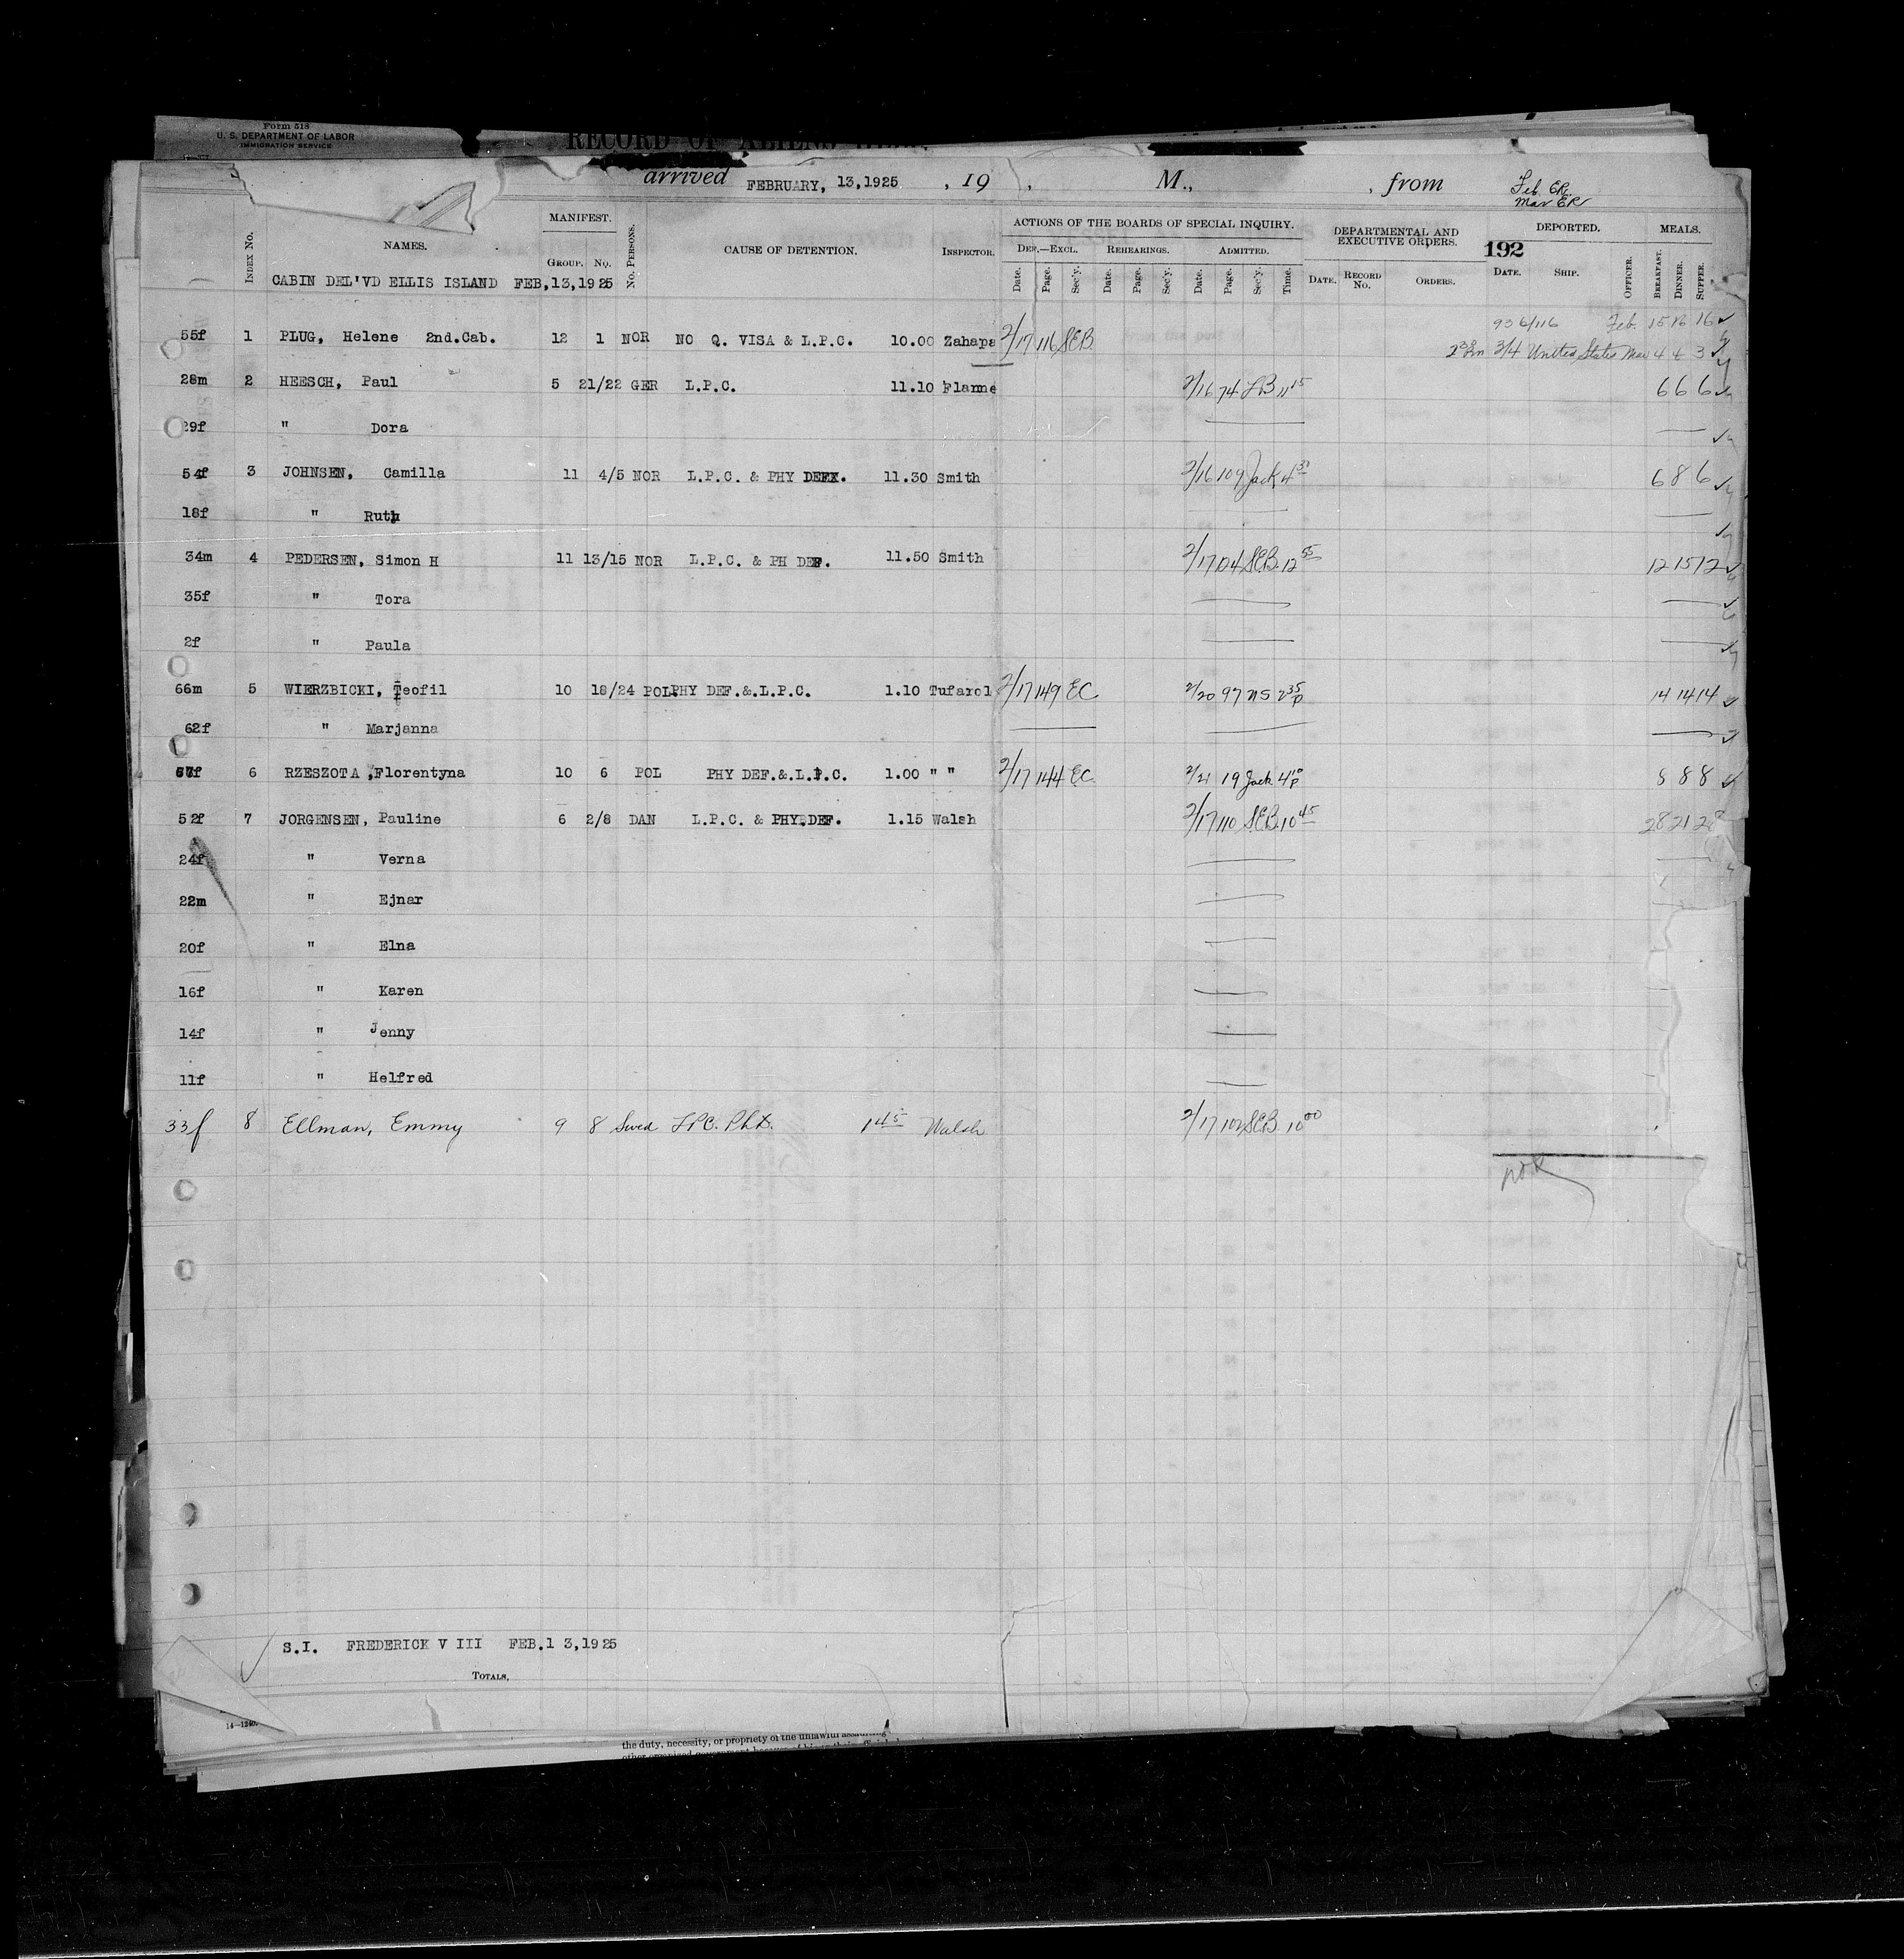 Form 518
U. S. DEPARTMENT OF LABOR
IMMIGRATION SERVICE
RECORD OF ALIENS
arrived FEBRUARY, 13,1925 , 19 , M., , from
Feb. ER.
Mar ER
INDEX No. NAMES. MANIFEST. GROUP. NO. No. PERSONS. CAUSE OF DETENTION. INSPECTOR. ACTIONS OF THE BOARDS OF SPECIAL INQUIRY. DEF.—EXCL. REHEARINGS. ADMITTED. DEPARTMENTAL AND EXECUTIVE ORDERS. DEPORTED. MEALS.
Date. Page. Sec'y. Date. Page. Sec'y. Date. Page. Sec'y. Time. DATE. RECORD No. ORDERS. 192 DATE. SHIP. OFFICER. BREAKFAST. DINNER. SUPPER.
CABIN DEL'VD ELLIS ISLAND FEB,13,1925
55f 1 PLUG, Helene 2nd.Cab. 12 1 NOR NO Q. VISA & L.P.C. 10.00 Zahapa 2/17 116 SEB. 93 6/116 Feb. 15 16 16
3/4 United States Mar 4 4 3
28m 2 HEESCH, Paul 5 21/22 GER L.P.C. 11.10 Flanne 2/16 74 LB 11 15 6 6 6
29f " Dora
54f 3 JOHNSEN, Camilla 11 4/5 NOR L.P.C. & PHY DEFX. 11.30 Smith 2/16 109 Jack 4 30 6 8 6
18f " Ruth
34m 4 PEDERSEN, Simon H 11 13/15 NOR L.P.C. & PH DEF. 11.50 Smith 2/17 104 SEB. 12 55 12 15 12
35f " Tora
2f " Paula
66m 5 WIERZBICKI, Teofil 10 18/24 POL. PHY DEF.&.L.P.C. 1.10 Tufarol 2/17 149 EC 2/20 97 NS 2 35 p 14 14 14
62f " Marjanna
67f 6 RZESZOTA ,Florentyna 10 6 POL PHY DEF.&.L.P.C. 1.00 " " 2/17 144 EC. 2/21 19 Jack 4 10 p 8 8 8
52f 7 JORGENSEN, Pauline 6 2/8 DAN L.P.C. & PHY.DEF. 1.15 Walsh 2/17 110 SEB. 10 45 28 21 28
24f " Verna
22m " Ejnar
20f " Elna
16f " Karen
14f " Jenny
11f " Helfred
33f 8 Ellman, Emmy 9 8 Swed LPC. Ph.D. 1 45 Walsh 2/17 102 SEB. 10 00
S.I. FREDERICK V III FEB.1 3,1925
TOTALS,
14—1240.
the duty, necessity, or propriety of the unlawful assaulting